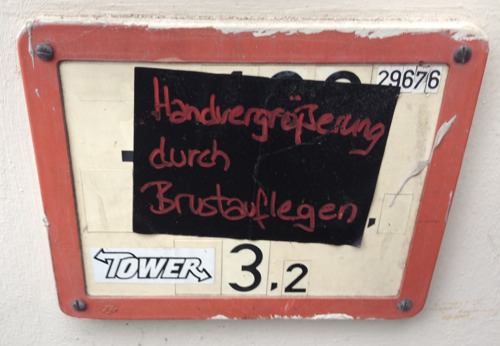 29676
Handvergrößerung
durch
Brustauflegen
TOWER
3,2